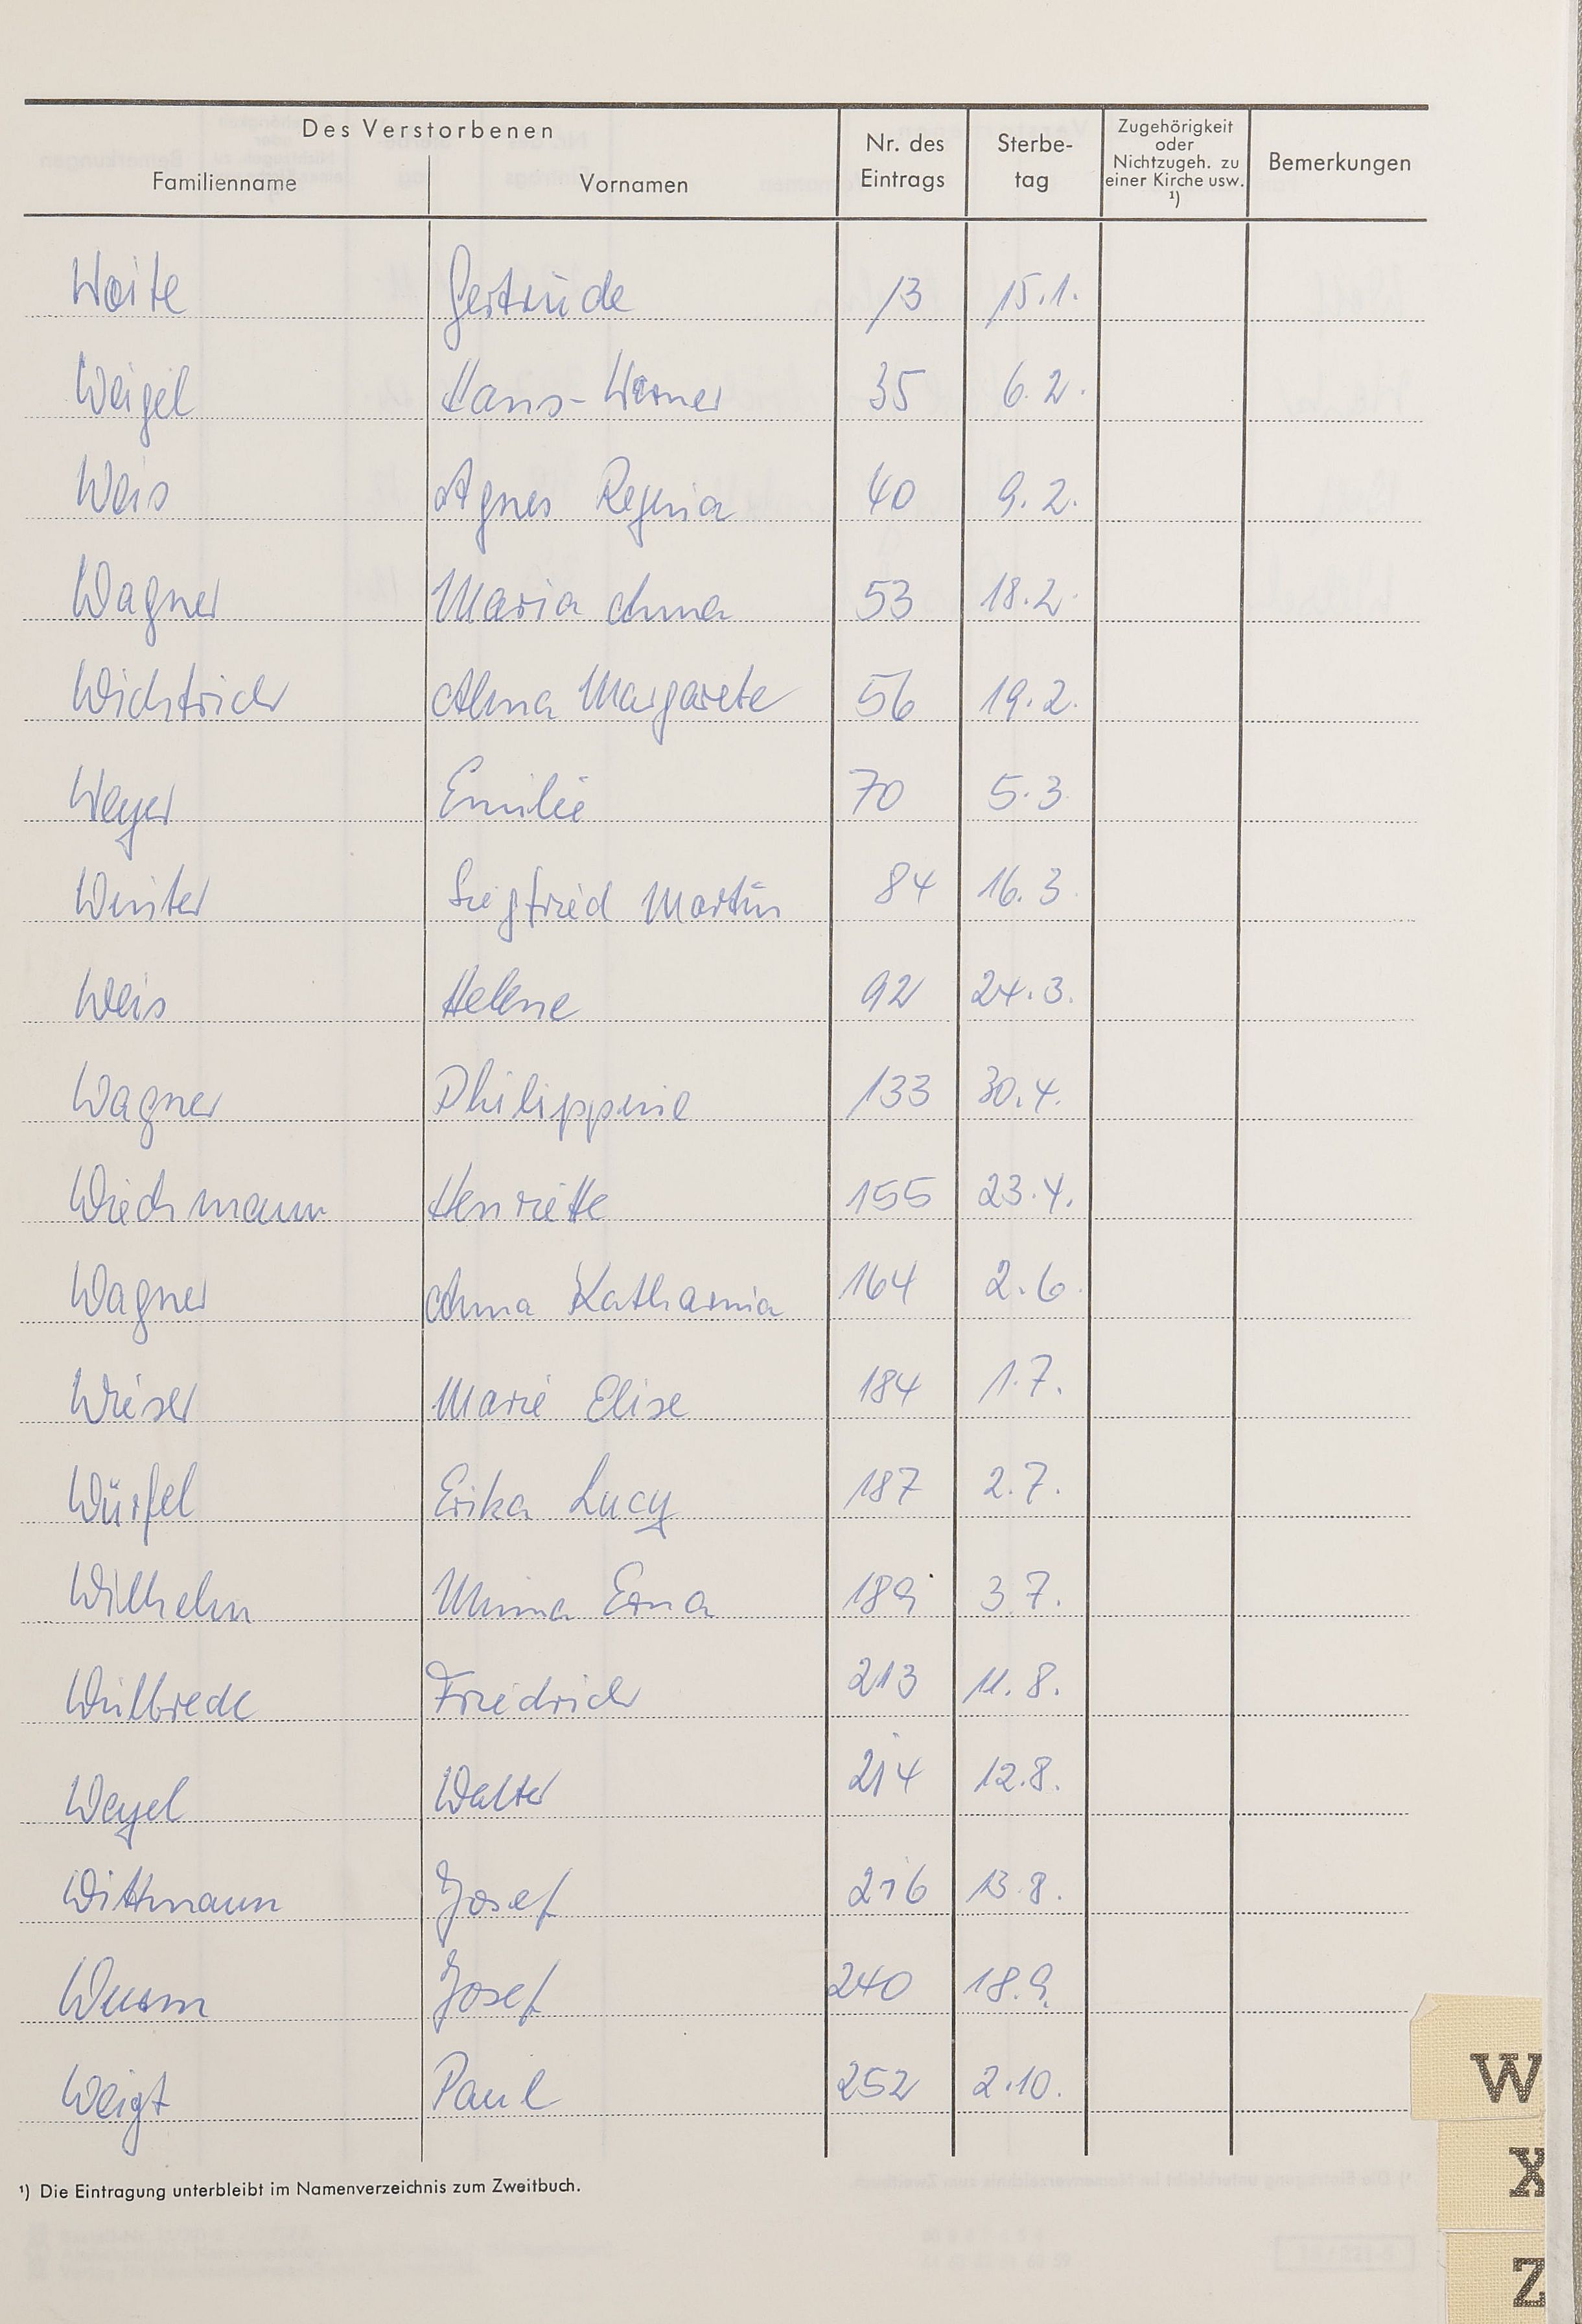 Des Verstorbenen
Familienname Vornamen Nr. des Eintrags Sterbe-tag Zugehörigkeit oder Nichtzugeh. zu einer Kirche usw. ¹) Bemerkungen
Woite Gertrude 13 15.1.
Weigel Hans-Werner 35 6.2.
Weis Agnes Regina 40 9.2.
Wagner Maria Anna 53 18.2.
Wichtrich Alma Margarete 56 19.2.
Weyer Emilie 70 5.3.
Winter Siegfried Martin 84 16.3.
Weis Helene 92 24.3.
Wagner Philippine 133 30.4.
Wiechmann Henriette 155 23.4.
Wagner Anna Katharina 164 2.6.
Wieser Marie Elise 184 1.7.
Würfel Erika Lucy 187 2.7.
Wilhelm Minna Erna 189 3.7.
Friedrich 213 11.8.
Weyel Walter 214 12.8.
Wittmann Josef 216 13.8.
Wurm Josef 240 18.9.
Weigt Paul 252 2.10.
¹) Die Eintragung unterbleibt im Namenverzeichnis zum Zweitbuch.
W
X
Z